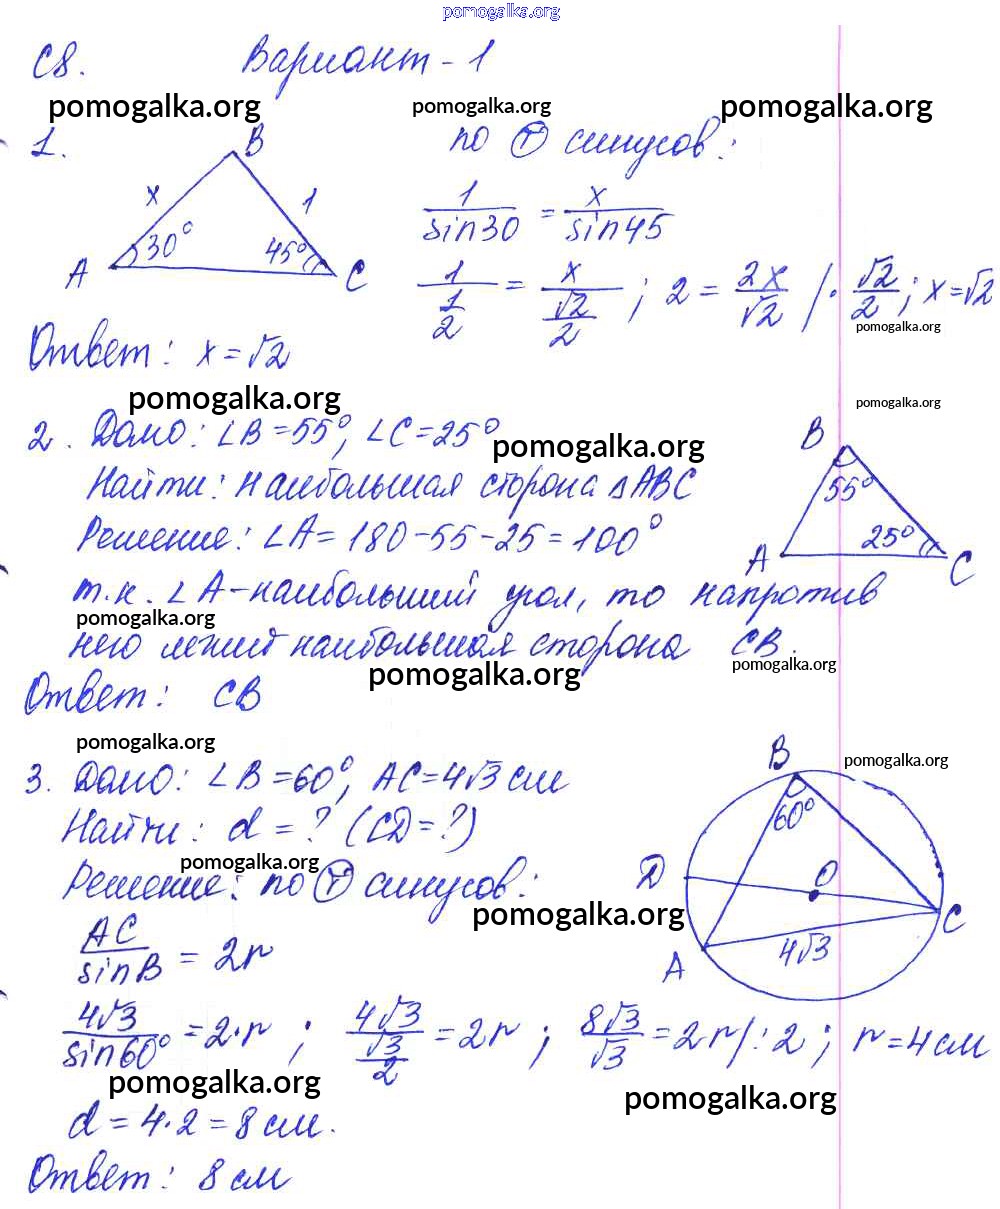 pomogalka.org
С8. Вариант - 1
pomogalka.org pomogalka.org pomogalka.org
1. B по Т синусов:
x 1
30° 45°
A C
1/sin30 = x/sin45
1/(1/2) = x/(√2/2) ; 2 = 2x/√2 / · √2/2 ; x=√2
pomogalka.org
Ответ: x = √2
pomogalka.org pomogalka.org
2. Дано: ∠B=55°, ∠C=25°
pomogalka.org
Найти: наибольшая сторона ΔABC
Решение: ∠A = 180-55-25 = 100°
B
55° 25°
A C
т.к. ∠A-наибольший угол, то напротив
pomogalka.org
него лежит наибольшая сторона CB.
pomogalka.org pomogalka.org
Ответ: CB
pomogalka.org
3. Дано: ∠B =60°, AC=4√3 см
pomogalka.org
Найти: d = ? (CD=?)
pomogalka.org
Решение: по Т синусов:
pomogalka.org
B
60°
D O C
A 4√3
AC/sinB = 2r
4√3/sin60° = 2·r ; 4√3/(√3/2) = 2r ; 8√3/√3 = 2r/:2 ; r=4см
pomogalka.org pomogalka.org
d = 4·2 = 8 см.
Ответ: 8 см